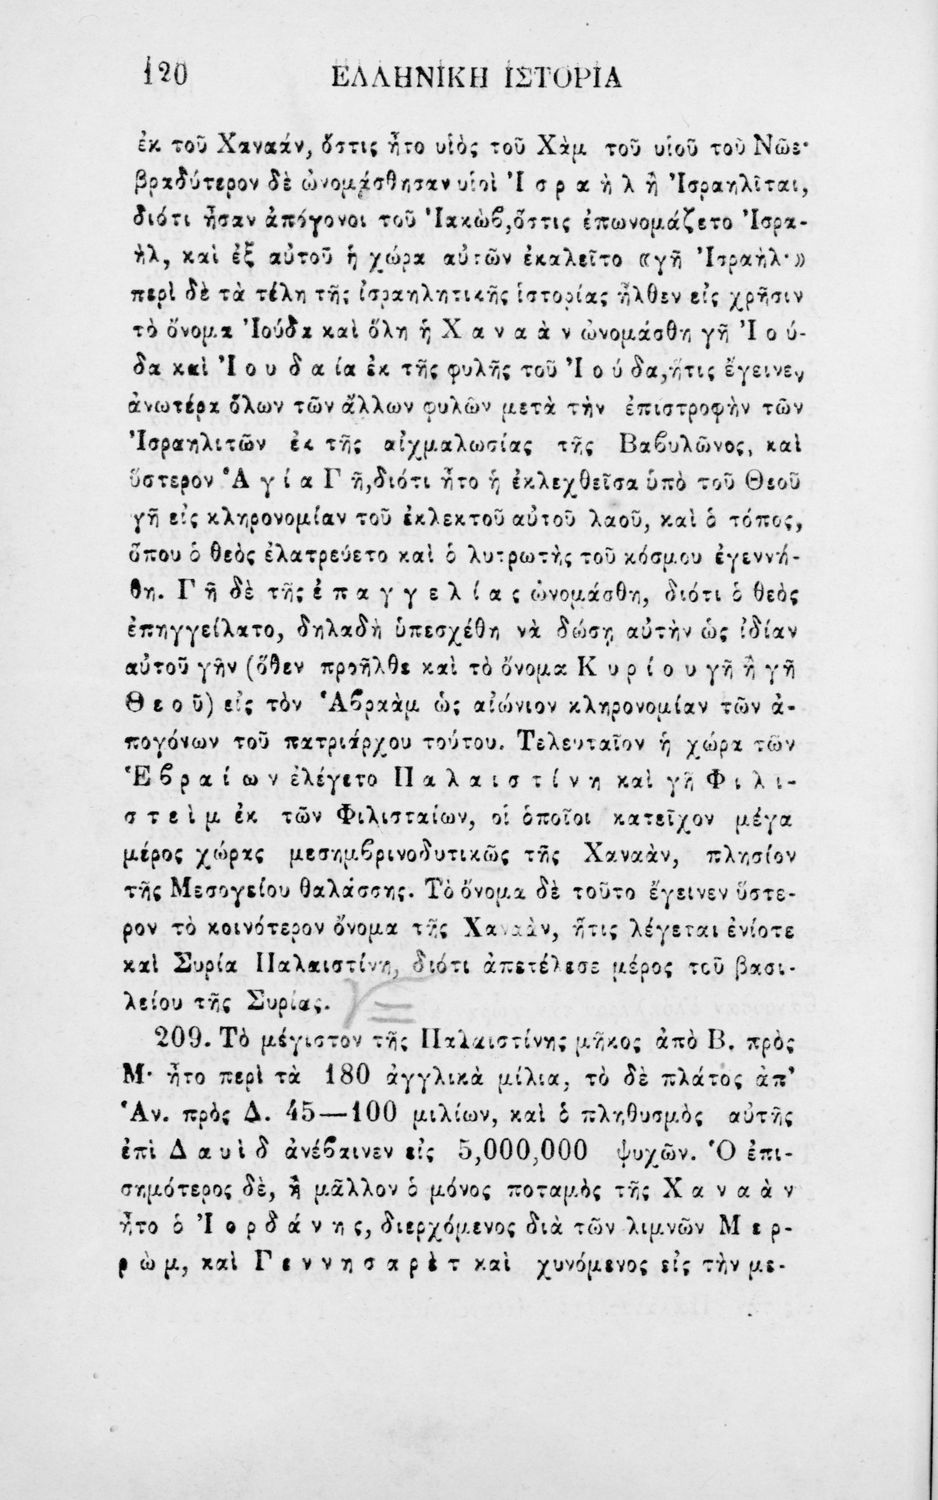 120 ΕΛΛΗΝΙΚΗ ΙΣΤΟΡΙΑ
ἐκ τοῦ Χαναάν, ὅστις ἦτο υἱὸς τοῦ Χὰμ τοῦ υἱοῦ τοῦ Νῶε·
βραδύτερον δὲ ὠνομάσθησαν υἱοὶ Ἰσραὴλ ἢ Ἰσραηλῖται,
διότι ἦσαν ἀπόγονοι τοῦ Ἰακὼβ, ὅστις ἐπωνομάζετο Ἰσρα-
ὴλ, καὶ ἐξ αὐτοῦ ἡ χώρα αὐτῶν ἐκαλεῖτο «γῆ Ἰσραὴλ·»
περὶ δὲ τὰ τέλη τῆς ἰσραηλητικῆς ἱστορίας ἦλθεν εἰς χρῆσιν
τὸ ὄνομα Ἰούδα καὶ ὅλη ἡ Χαναὰν ὠνομάσθη γῆ Ἰού-
δα καὶ Ἰουδαία ἐκ τῆς φυλῆς τοῦ Ἰούδα, ἥτις ἔγεινεν
ἀνωτέρα ὅλων τῶν ἄλλων φυλῶν μετὰ τὴν ἐπιστροφὴν τῶν
Ἰσραηλιτῶν ἐκ τῆς αἰχμαλωσίας τῆς Βαβυλῶνος, καὶ
ὕστερον Ἁγία Γῆ, διότι ἦτο ἡ ἐκλεχθεῖσα ὑπὸ τοῦ Θεοῦ
γῆ εἰς κληρονομίαν τοῦ ἐκλεκτοῦ αὐτοῦ λαοῦ, καὶ ὁ τόπος,
ὅπου ὁ θεὸς ἐλατρεύετο καὶ ὁ λυτρωτὴς τοῦ κόσμου ἐγεννή-
θη. Γῆ δὲ τῆς ἐπαγγελίας ὠνομάσθη, διότι ὁ θεὸς
ἐπηγγείλατο, δηλαδὴ ὑπεσχέθη νὰ δώσῃ αὐτὴν ὡς ἰδίαν
αὐτοῦ γῆν (ὅθεν προῆλθε καὶ τὸ ὄνομα Κυρίου γῆ ἢ γῆ
Θεοῦ) εἰς τὸν Ἀβραὰμ ὡς αἰώνιον κληρονομίαν τῶν ἀ-
πογόνων τοῦ πατριάρχου τούτου. Τελευταῖον ἡ χώρα τῶν
Ἑβραίων ἐλέγετο Παλαιστίνη καὶ γῆ Φιλι-
στεὶμ ἐκ τῶν Φιλισταίων, οἱ ὁποῖοι κατεῖχον μέγα
μέρος χώρας μεσημβρινοδυτικῶς τῆς Χαναὰν, πλησίον
τῆς Μεσογείου θαλάσσης. Τὸ ὄνομα δὲ τοῦτο ἔγεινεν ὕστε-
ρον τὸ κοινότερον ὄνομα τῆς Χαναὰν, ἥτις λέγεται ἐνίοτε
καὶ Συρία Παλαιστίνη, διότι ἀπετέλεσε μέρος τοῦ βασι-
λείου τῆς Συρίας.
209. Τὸ μέγιστον τῆς Παλαιστίνης μῆκος ἀπὸ Β. πρὸς
Μ· ἦτο περὶ τὰ 180 ἀγγλικὰ μίλια, τὸ δὲ πλάτος ἀπ'
Ἀν. πρὸς Δ. 45—100 μιλίων, καὶ ὁ πληθυσμὸς αὐτῆς
ἐπὶ Δαυὶδ ἀνέβαινεν εἰς 5,000,000 ψυχῶν. Ὁ ἐπι-
σημότερος δὲ, ἢ μᾶλλον ὁ μόνος ποταμὸς τῆς Χαναὰν
ἦτο ὁ Ἰορδάνης, διερχόμενος διὰ τῶν λιμνῶν Μερ-
ρὼμ, καὶ Γεννησαρὲτ καὶ χυνόμενος εἰς τὴν με-